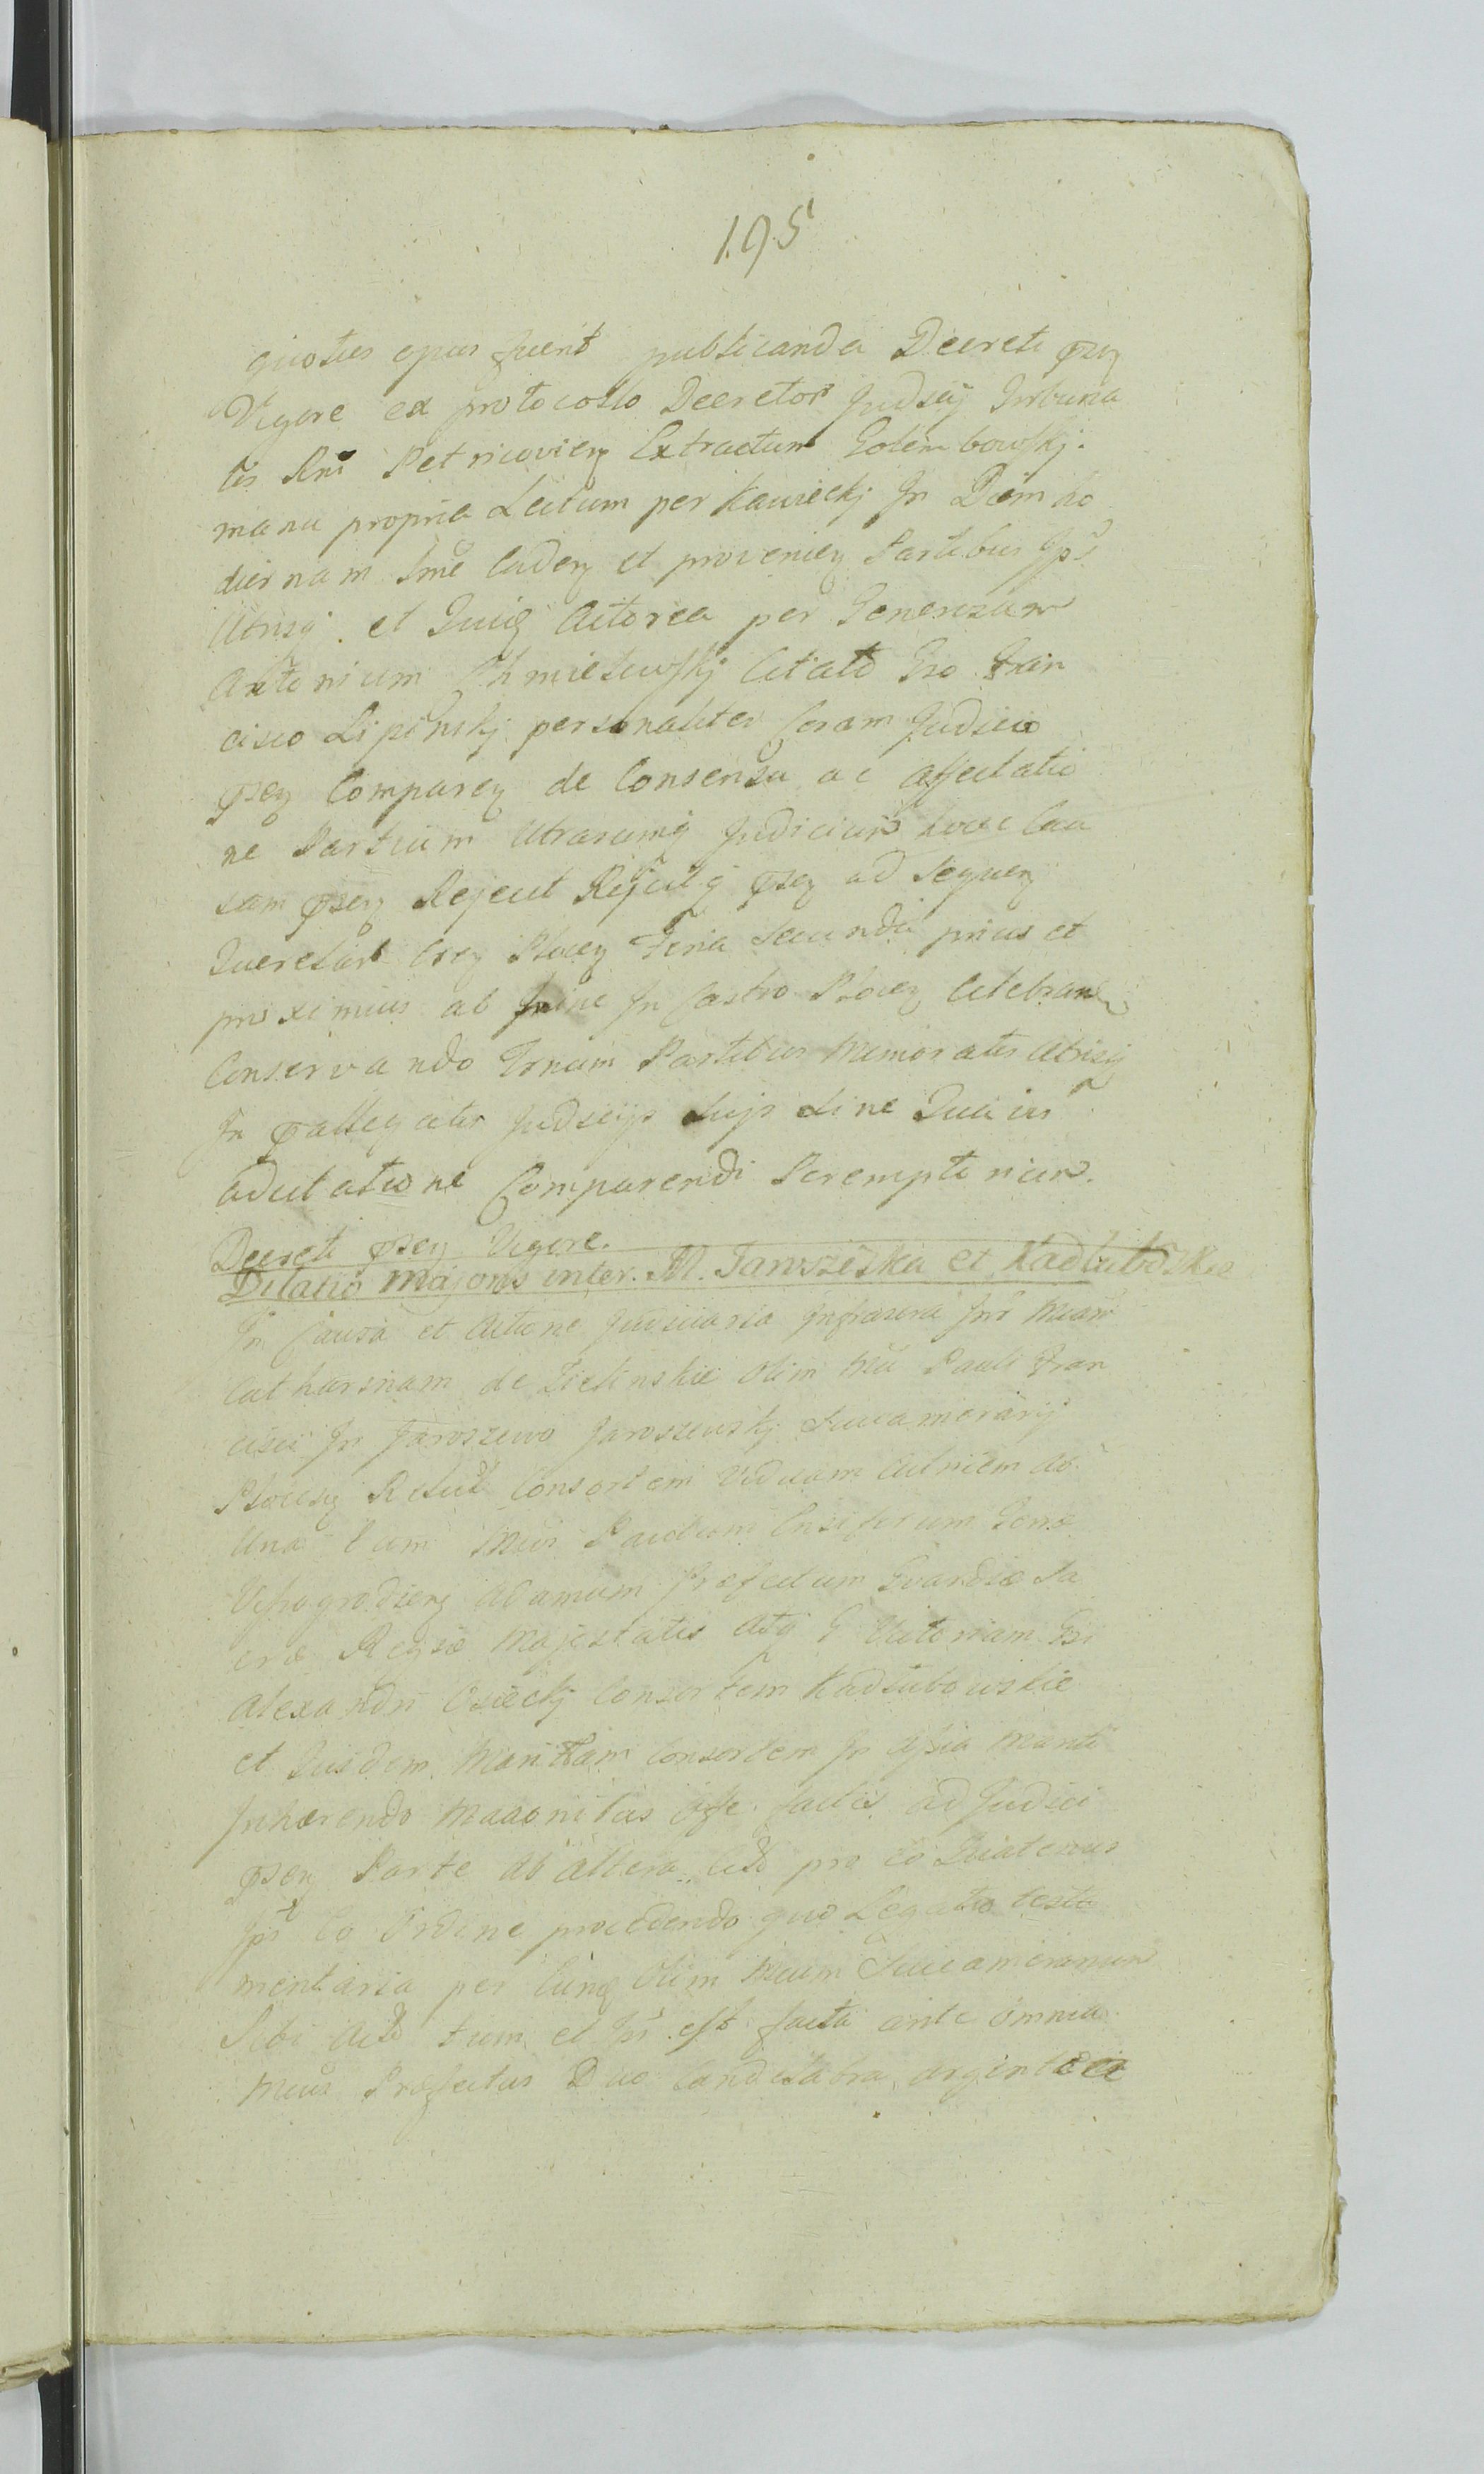 195
quoties opus fuerit publicanda Decreti pñz
Vigore ex protocollo Decretor Judscÿ Tribuna
lis Rni Petricovien Extractum Golembowskj.
manu propria Lectum per Kawieckj In Diem ho
diernam Sme Caden et provenien Partibus Ips
Utrisq. et Quidem Actorea per Generosum
Antonium Chmielewskj Citato Gso Fran
cisco Lipinskj personaliter Coram Judicio
pñz Comparen de Consensu ac Affectatio
ne Partium Utrarumq Judicium hocce Cau
sam pñz Rejecit Rejicitq pñz ad Sequen
Querelar Cren Plocen Feria Secunda prius et
proximius ab hinc In Castro Plocen Celebran
Conservando Trnum Partibus Memoratis Utrisq
In pallegatis Judscijs Sujs Sine Quavis
adcitatione Comparendi Peremptorium.
Decreti pñz Vigore.
Dilatio Majoris inter. M. Jaroszeska et Kadlubozkie
In Causa et Actione Judiciaria Infrascra Inr Mcam
Catharinam de Zielinskie Olim Mci Pauli Fran
cisci In Jaroszewo Jaroszewskj Succamerarij
Plocen Relict Consortem Viduam Actricem ab
Una Cum Mcis Paulum Ensiferum Terræ
Vyszogrodien Adamum Præfectum Gvardiæ Sa
cræ Regiæ Majestatis Atq G Victoriam Gsi
Alexandri Osieckj Consortem Kadlubowskie
et Eiusdem Maritam Consortem In Assia Mariti
Inhærendo Munonitis Osse. factis ad Judici
pñz Parte ab altera. Citt pro eo Quatenus
Ipi Eo Ordine procedendo quo Legatio testa
mentaria per Eundem Olim Mcum Succamerarium
Sibi Act tum et Ipi est facta ante omnia
Mcus Præfectus Duo Candelabra argentea